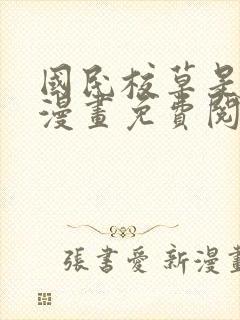 國民校草是
漫畫免費閱
張書愛 新漫畫